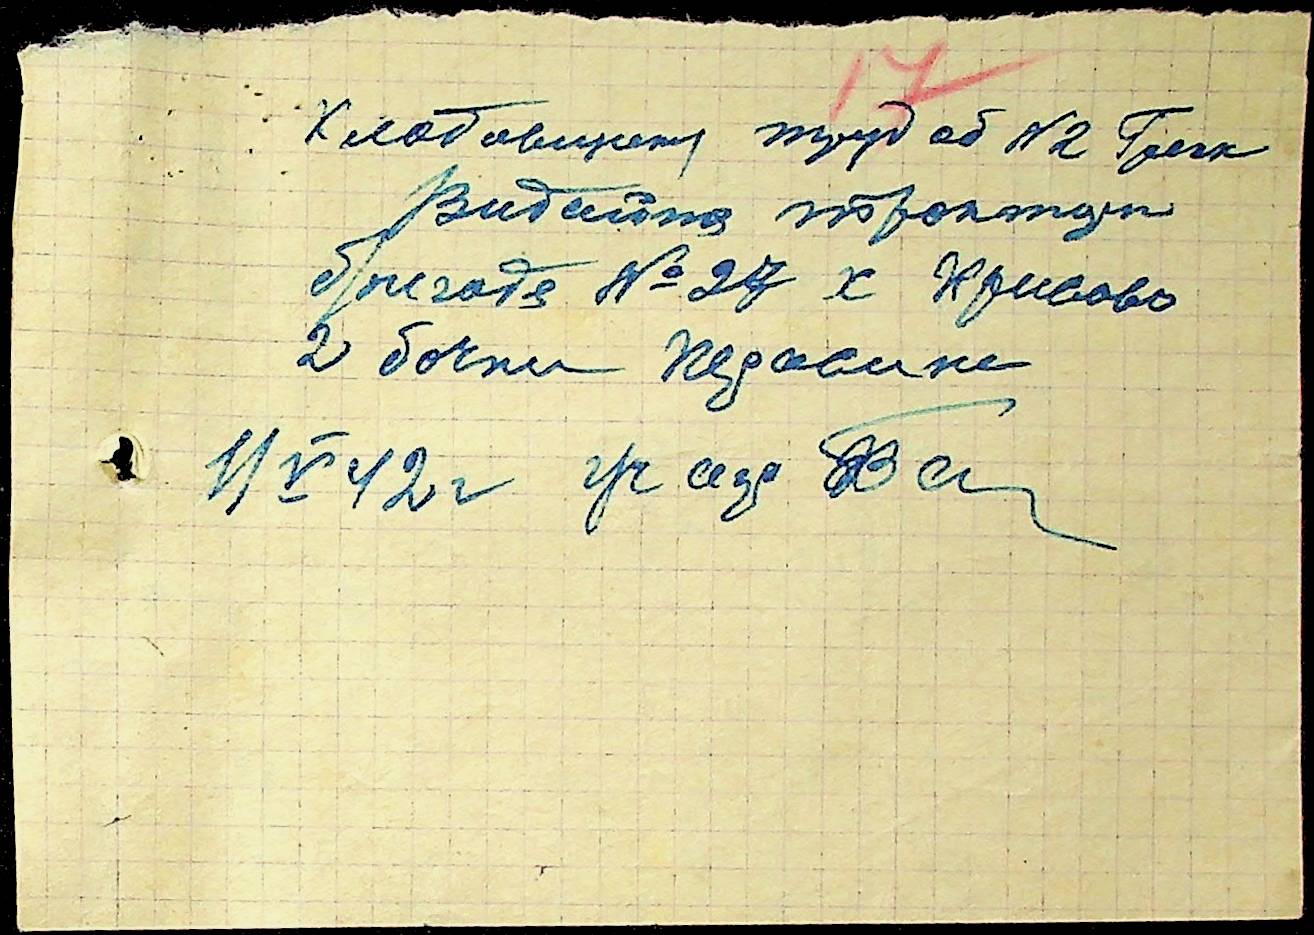 17
Кладовщику труд об N2 Грек
Видайте трактирн
бригаде № 27 х Кривово
2 бочки Керасине
11/VI 42 г уч агр